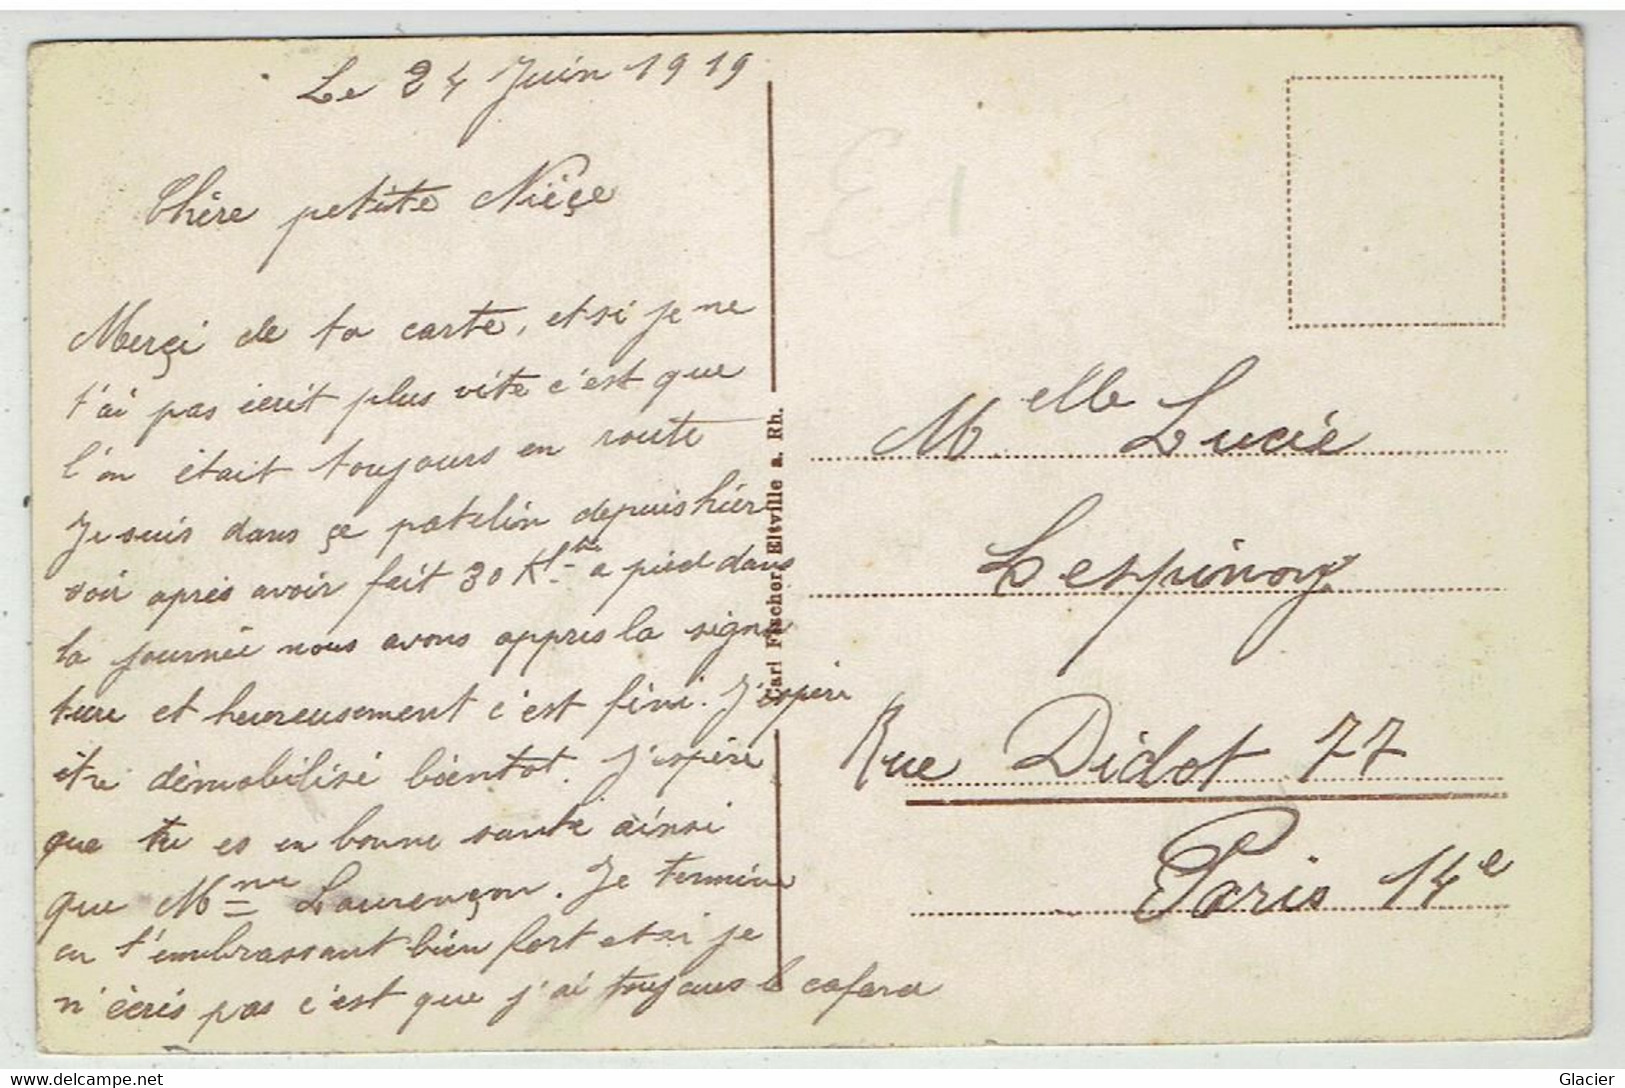 Le 24 Juin 1919
Chère petite Nièçe
Merçi de ta carte, et si je ne
t'ai pas écrit plus vite c'est que
l'on était toujours en route
Je suis dans çe patelin depuis hier
soir après avoir fait 30 à pied dans
la journée nous avons appris la signa
ture et heureusement c'est fini. J'espère
être démobilisé bientot. J'espère
que tu es en bonne santé ainsi
que Mme Laurençon. Je termine
en t'embrassant bien fort et si je
n'écris pas c'est que j'ai toujours le cafard
Carl Fischer, Eltville a. Rh.
Melle Lucie
Lespinoy
Rue Didot 77
Paris 14e
Glacier